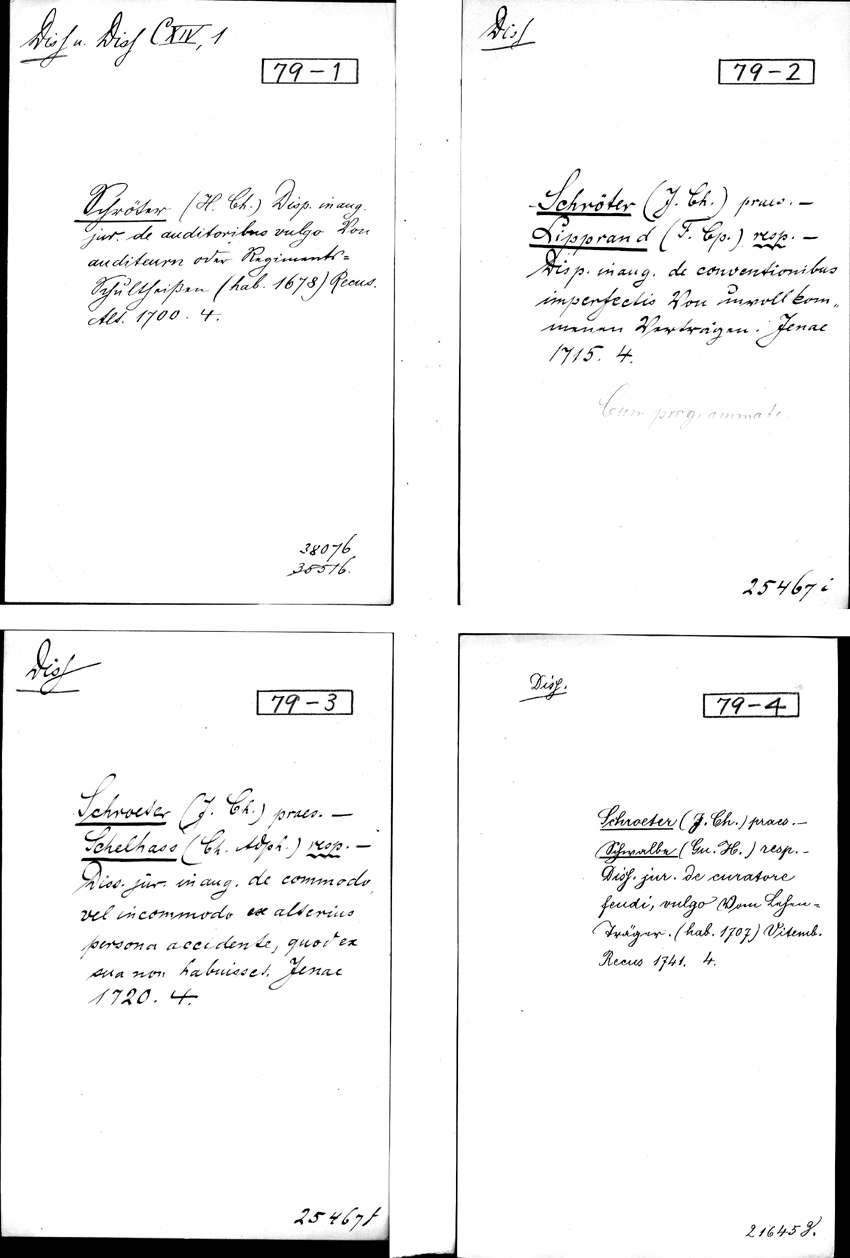 Diss u. Diss CXIV, 1
79-1
Schröter (H. Ch.) Disp. inaug.
jur. de auditoribus vulgo Von
auditeurn oder Regiments-
Schultheißen (hab. 1678) Recus.
Alt. 1700. 4.
38076
38516.
Diss
79-2
Schröter (J. Ch.) praes. —
Lipprand (F. Cp.) resp. —
Disp. inaug. de conventionibus
imperfectis Von unvollkom„
menen Verträgen. Jenae
1715. 4.
Cum programmate
25467 i
Diss
79-3
Schroeter (J. Ch.) praes. —
Schelhass (Ch. Adph.) resp. —
Diss. jur. inaug. de commodo,
vel incommodo ex alterius
persona accidente, quod ex
sua non habuisset. Jenae
1720. 4.
25467f
Diss.
79-4
Schroeter (J. Ch.) praes. —
Schwalbe (Gu. H.) resp. —
Diss. jur. de curatore
feudi, vulgo Vom Lehen-
Träger. (hab. 1707) Vitemb.
Recus 1741. 4.
21645g.